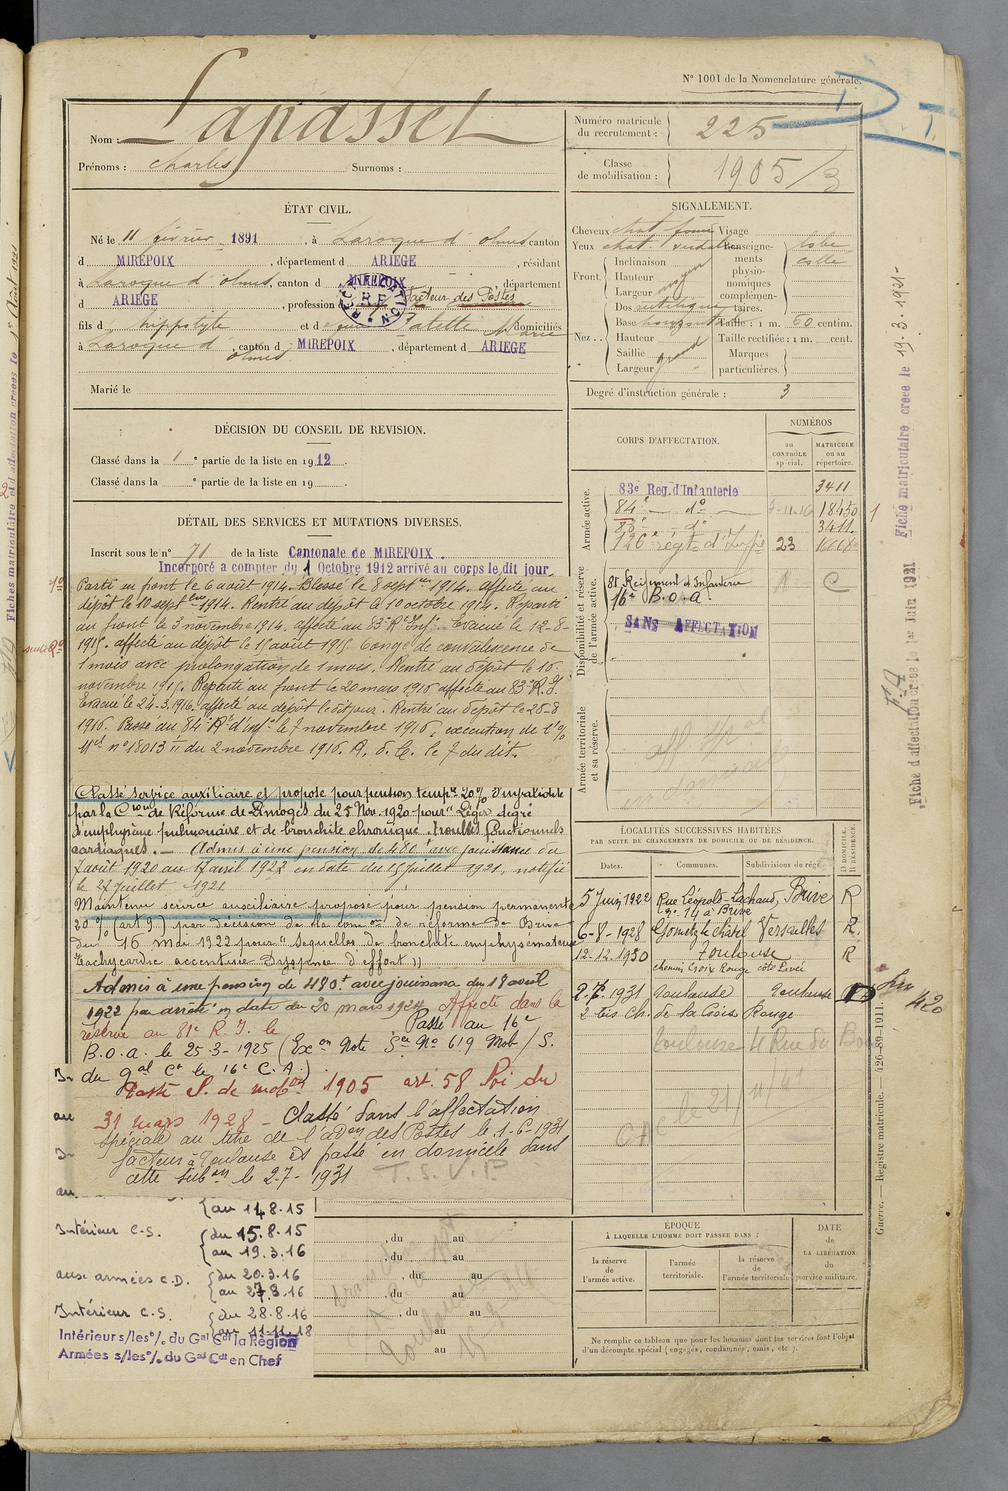 N° 1001 de la Nomenclature générale.
Nom : Lapasset
Prénoms : Charles Surnoms :
Numéro matricule du recrutement : 225
Classe de mobilisation : 1905/3
ÉTAT CIVIL.
Né le 11 février 1891, à Laroque d'olmes canton
d MIREPOIX, département d ARIEGE, résidant
à Laroque d'olmes, canton d MIREPOIX département
d ARIEGE, profession d facteur des Postes
fils d hippolyte et d Marie domiciliés
à Laroque d'olmes, canton d MIREPOIX, département d ARIEGE
Marié le
SIGNALEMENT.
Cheveux chat. foncé Visage
Yeux chat.
Renseignements physionomiques complémentaires.
lobe
collé
Front. Inclinaison
Hauteur
Largeur moyen
Nez.. Dos rectiligne
Base horizontale Taille : 1 m. 60 centim.
Hauteur Taille rectifiée : 1 m. cent.
Saillie Marques
Largeur grand particulières.
Degré d'instruction générale : 3
DÉCISION DU CONSEIL DE REVISION.
Classé dans la 1e partie de la liste en 1912.
Classé dans la e partie de la liste en 19 .
DÉTAIL DES SERVICES ET MUTATIONS DIVERSES.
Inscrit sous le n° 71 de la liste Cantonale de MIREPOIX.
Incorporé a compter du 1 Octobre 1912 arrivé au corps le dit jour
Parti au front le 6 août 1914. Blessé le 8 septbre 1914. Affecté au
dépôt le 10 septbre 1914. Rentré au dépôt le 10 octobre 1914. Reparti
au front le 3 novembre 1914, affecté au 83e R. Inf. Evacué le 12-8-
1915. affecté au dépôt le 15 août 1915. Congé de convalescence de
1 mois avec prolongation de 1 mois. Rentré au dépôt le 16
novembre 1915. Reparti au front le 20 mars 1916 affecté au 83e R.I.
Evacué le 24-3-1916, affecté au dépôt le dit jour. Rentré au dépôt le 28-8
1916. Passé au 84e R. d'Infie le 7 novembre 1916, execution de l'o/
Mel n° 18013 II du 2 novembre 1916. A. d. C. le 7 du dit.
Classé service auxiliaire et proposé pour pension tempre 20% d'invalidité
par la Con de Réforme de Limoges du 25 Nov. 1920 pour "Léger degré
d'emphysème pulmonaire et de bronchite chronique. Troubles fonctionnels
cardiaques. — Admis à une pension de 480f avec jouissance du
7 août 1920 au 17 avril 1922 en date du 15 juillet 1921, notifié
le 27 juillet 1921
Maintenu service auxiliaire proposé pour pension permanente
20% (art 9) par décision de la com on de réforme de Brive
du 16 Mai 1922 pour "Séquelles de bronchite emphysémateuse
Tachycardie accentuée Dyspnée d'effort"
Admis à une pension de 480f avec jouissance du 18 avril
1922 par arrêté en date du 20 mars 1924 Affecté dans la
réserve au 81e R. I. le Passé au 16e
B.O.A. le 25-3-1925 (Exon Note Sce No 619 Mob/S.
du gal Ct le 16e C.A.)
Passé S. de mobon 1905 art. 58 loi du
31 mars 1928 - Classé dans l'affectation
Spéciale au titre de l'adon des Postes le 1-6-1931
facteur à Toulouse est passé en domicile dans
cette subon le 2-7-1931
T.S.V.P
au 14.8.15
Intérieur C-S. du 15.8.15
au 19.3.16
aux armées C.D. du 20.3.16
au 27.3.16
Intérieur C-S. du 28-8-16
au 11-11-18
Intérieur s/les o/. du Gal Cdt la Région
Armées s/les o/. du Gal Cdt en Chef
, du au
, du au
, du au
, du au
, du au
au
au
CORPS D'AFFECTATION.
NUMÉROS
au CONTRÔLE spécial.
MATRICULE ou au répertoire.
Armée active.
83e Reg. d'Infanterie 3411
84e do 7-11-16 18450
83e do 3411
126e régt d'Infie 23
Disponibilité et réserve de l'armée active.
81 Régiment d'Infanterie
16e B.O.A.
SANS AFFECTATION
Armée territoriale et sa réserve.
LOCALITÉS SUCCESSIVES HABITÉES
PAR SUITE DE CHANGEMENTS DE DOMICILE OU DE RÉSIDENCE.
Dates. Communes. Subdivisions de régn. D. DOMICILE. R. RÉSIDENCE.
5 Juin 1922 Rue Léopold-Lachaud, No 14 à Brive Brive R
6-8-1928 Gometz le chatel Versailles R.
12-12-1930 Toulouse chemin Croix Rouge côté Livée R
2-7-1931 Toulouse Toulouse D
2 bis Ch. de la Croix Rouge
Toulouse 4 Rue du
le 21/11/
ÉPOQUE
À LAQUELLE L'HOMME DOIT PASSER DANS :
la réserve de l'armée active.
l'armée territoriale.
la réserve de l'armée territoriale.
DATE de LA LIBÉRATION du service militaire.
Ne remplir ce tableau que pour les hommes dont les services font l'objet
d'un décompte spécial (engagés, condamnés, omis, etc.).
Fiche matriculaire créée le 19.3.1921-
Fiche d'affectation créée le 1er Juin 1931
Guerre. — Registre matricule. — 426-89-1911.
420